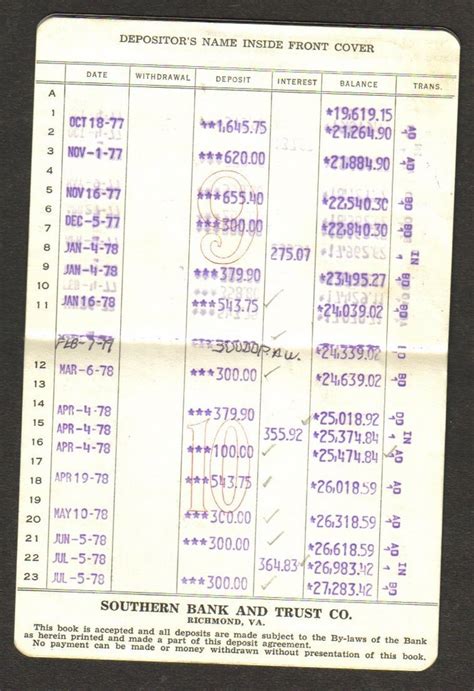 DEPOSITOR'S NAME INSIDE FRONT COVER
DATE WITHDRAWAL DEPOSIT INTEREST BALANCE TRANS.
A
1 *19,619.15
2 OCT 18-77 **1,645.75 *21,264.90 AD
3 NOV-1-77 ***620.00 *21,884.90 AD
4
5 NOV 16-77 ***655.40 *22,540.30 BD
6
7 DEC-5-77 ***300.00 *22,840.30 BD
8 JAN-4-78 275.07 IN
9 JAN-4-78 ***379.90 *23,495.27 BD
10
11 JAN 16-78 ***543.75 *24,039.02 BD
300.00 *24,339.02
12 MAR-6-78 ***300.00 *24,639.02 BD
13
14 APR-4-78 ***379.90 *25,018.92
15 APR-4-78 355.92 *25,374.84 IN
16 APR-4-78 ***100.00 *25,474.84 AD
17
18 APR 19-78 ***543.75 *26,018.59 AD
19
20 MAY 10-78 ***300.00 *26,318.59 AD
21 JUN-5-78 ***300.00 *26,618.59 AD
22 JUL-5-78 364.83 *26,983.42 IN
23 JUL-5-78 ***300.00 *27,283.42 BD
9
10
SOUTHERN BANK AND TRUST CO.
RICHMOND, VA.
This book is accepted and all deposits are made subject to the By-laws of the Bank
as herein printed and made a part of this deposit agreement.
No payment can be made or money withdrawn without presentation of this book.